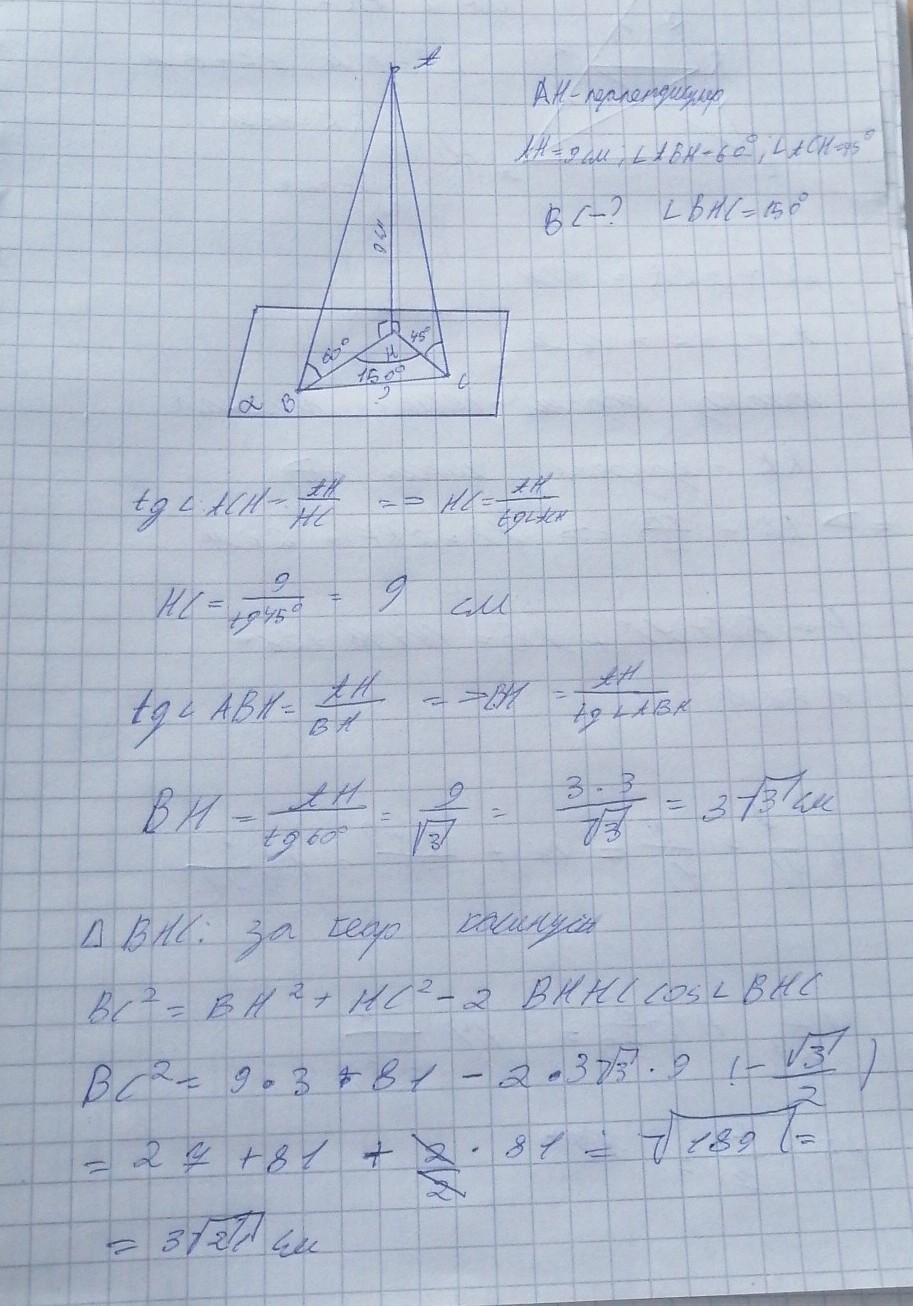 A
AH - перпендикуляр
AH = 9 см ; ∠ABH = 60° ; ∠ACH = 45°
BC - ? ∠BHC = 150°
60°
45°
H
150°
α
B
?
C
tg ∠ ACH = AH/HC => HC = AH/tg∠ACH
HC = 9/tg45° = 9 см
tg ∠ ABH = AH/BH => BH = AH/tg∠ABH
BH = AH/tg60° = 9/√3 = 3·3/√3 = 3√3 см
Δ BHC: за теор косинусів
BC² = BH² + HC² - 2 BHHC cos∠BHC
BC² = 9·3 + 81 - 2·3√3·9 (-√3/2)
= 27 + 81 + 2/2 · 81 = √189 =
= 3√21 см